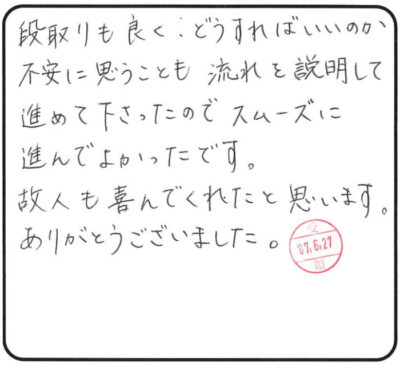 段取りも良く、どうすればいいのか
不安に思うことも 流れを説明して
進めて下さったので スムーズに
進んでよかったです。
故人も喜んでくれたと思います。
ありがとうございました。
'07.6.27